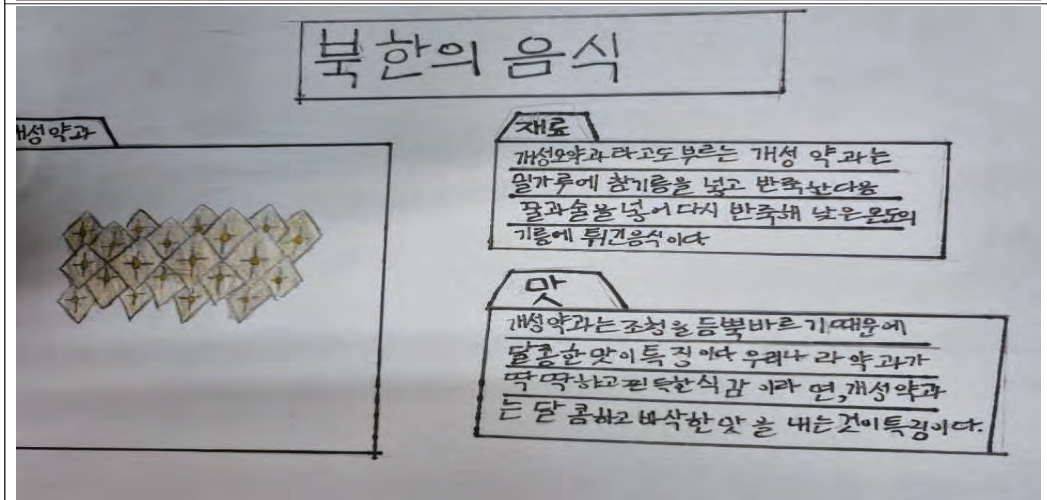 북한의 음식
개성약과
재료
개성모약과 라고도 부르는 개성 약과는
밀가루에 참기름을 넣고 반죽한다음
꿀과술을넣어 다시 반죽해 낮은온도의
기름에 튀긴음식이다
맛
개성약과는 조청을 듬뿍바르기때문에
달콤한맛이특징이다 우리나라 약과가
딱딱하고 찐득한식감 이라면,개성약과
는 달콤하고 바삭한맛을 내는것이특징이다.